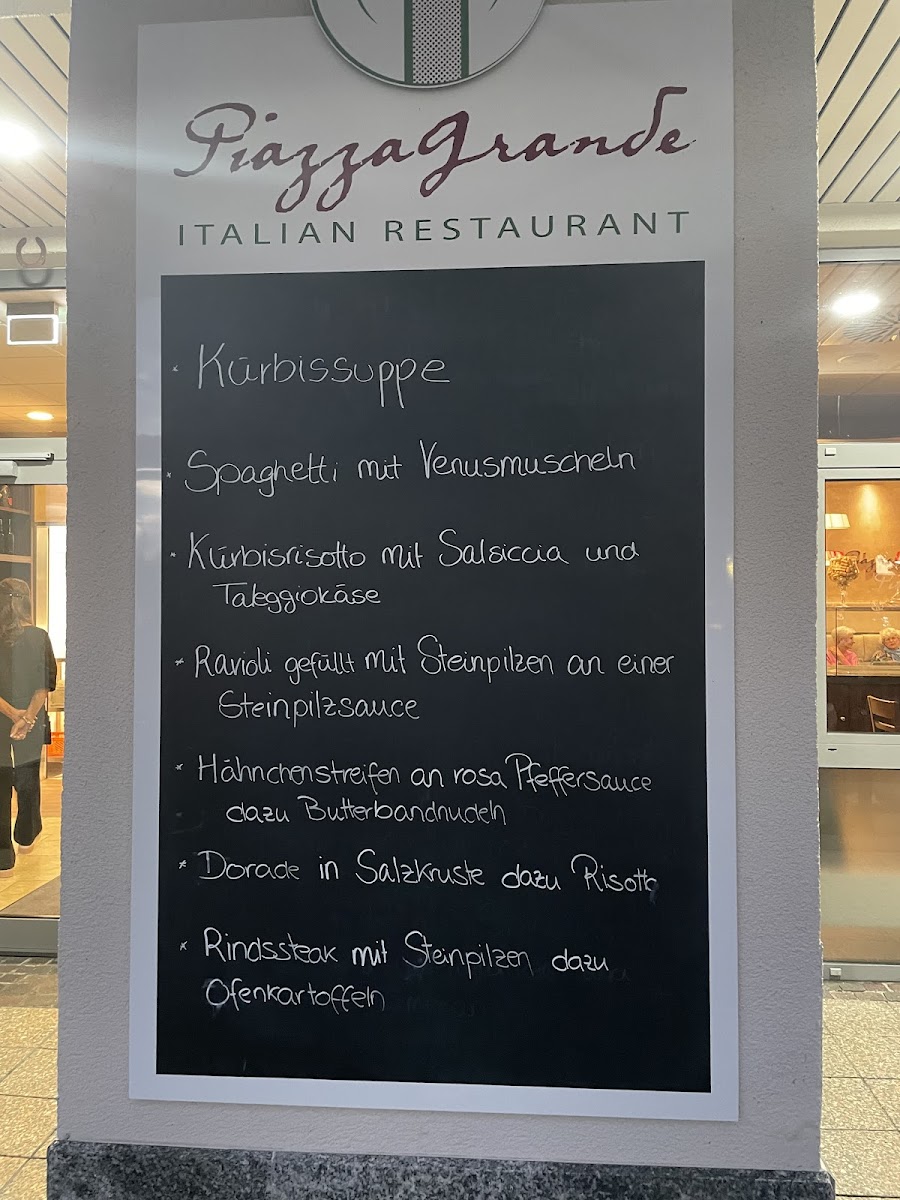 PiazzaGrande
ITALIAN RESTAURANT
* Kürbissuppe
* Spaghetti mit Venusmuscheln
* Kürbisrisotto mit Salsiccia und
Taleggiokäse
* Ravioli gefüllt mit Steinpilzen an einer
Steinpilzsauce
* Hähnchenstreifen an rosa Pfeffersauce
dazu Butterbandnudeln
* Dorade in Salzkruste dazu Risotto
* Rindssteak mit Steinpilzen dazu
Ofenkartoffeln